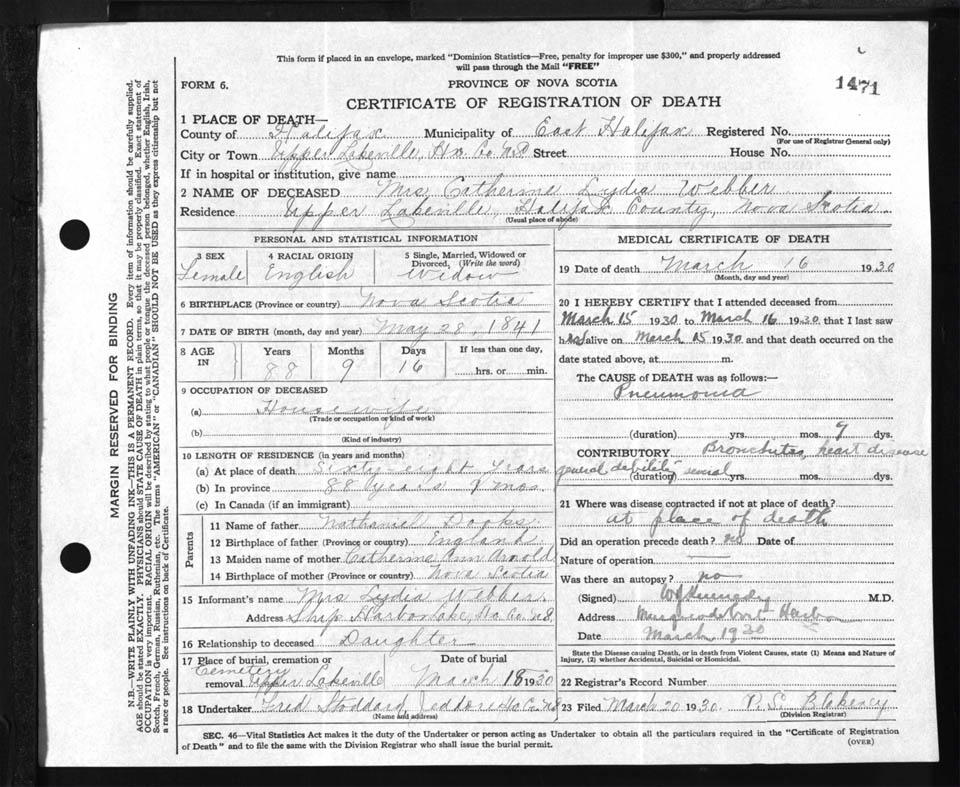 This form if placed in an envelope, marked "Dominion Statistics—Free, penalty for improper use $300," and properly addressed
will pass through the Mail "FREE"
FORM 6.
PROVINCE OF NOVA SCOTIA
1471
CERTIFICATE OF REGISTRATION OF DEATH
1 PLACE OF DEATH—
County of Halifax Municipality of East Halifax Registered No.
(For use of Registrar General only)
City or Town Upper Lakeville, Hx. Co. N.S. Street House No.
If in hospital or institution, give name
2 NAME OF DECEASED Mrs Catherine Lydia Webber
Residence Upper Lakeville, Halifax County, Nova Scotia.
(Usual place of abode)
PERSONAL AND STATISTICAL INFORMATION
3 SEX
Female
4 RACIAL ORIGIN
English
5 Single, Married, Widowed or
Divorced, (Write the word)
Widow
6 BIRTHPLACE (Province or country) Nova Scotia
7 DATE OF BIRTH (month, day and year) May 28, 1841
8 AGE IN
Years
88
Months
9
Days
16
If less than one day,
hrs. or min.
9 OCCUPATION OF DECEASED
(a) Housewife
(Trade or occupation or kind of work)
(b)
(Kind of industry)
10 LENGTH OF RESIDENCE (in years and months)
(a) At place of death Sixty-eight Years
(b) In province 88 years 9 mos.
(c) In Canada (if an immigrant)
Parents
11 Name of father Nathaniel Dooks
12 Birthplace of father (Province or country) England
13 Maiden name of mother Catherine Ann Arnold
14 Birthplace of mother (Province or country) Nova Scotia
15 Informant's name Mrs Lydia Webber
Address Ship Harbor Lake, Hx. Co. N.S.
16 Relationship to deceased Daughter
17 Place of burial, cremation or
removal Cemetery Upper Lakeville
Date of burial
March 18 1930
18 Undertaker Fred Stoddard, Jeddore Hx Co. N.S
(Name and address)
MEDICAL CERTIFICATE OF DEATH
19 Date of death March 16 1930
(Month, day and year)
20 I HEREBY CERTIFY that I attended deceased from
March 15 1930 to March 16 1930 that I last saw
her alive on March 15 1930 and that death occurred on the
date stated above, at m.
The CAUSE OF DEATH was as follows:—
Pneumonia
(duration) yrs. mos. 9 dys.
CONTRIBUTORY Bronchitis, heart disease
general debility
(duration) several yrs. mos. dys.
21 Where was disease contracted if not at place of death?
at place of death
Did an operation precede death? no Date of
Nature of operation
Was there an autopsy? no
(Signed) Kennedy M.D.
Address Musquodoboit Harbor
Date March 1930
State the Disease causing Death, or in death from Violent Causes, state (1) Means and Nature of
Injury, (2) whether Accidental, Suicidal or Homicidal.
22 Registrar's Record Number
23 Filed March 20 1930. R. C. Blakeney
(Division Registrar)
SEC. 46—Vital Statistics Act makes it the duty of the Undertaker or person acting as Undertaker to obtain all the particulars required in the "Certificate of Registration
of Death" and to file the same with the Division Registrar who shall issue the burial permit.
(OVER)
MARGIN RESERVED FOR BINDING
N.B.—WRITE PLAINLY, WITH UNFADING INK—THIS IS A PERMANENT RECORD. Every item of information should be carefully supplied.
AGE should be stated EXACTLY. PHYSICIANS should STATE CAUSE OF DEATH in plain terms, so that it may be properly classified. Exact statement of
OCCUPATION is very important. RACIAL ORIGIN will be described by stating to what people or tongue the deceased person belonged, whether English, Irish,
Scotch, French, German, Russian, Ruthenian, etc. The terms "AMERICAN" or "CANADIAN" SHOULD NOT BE USED as they express citizenship but not
a race or people. See instructions on back of Certificate.